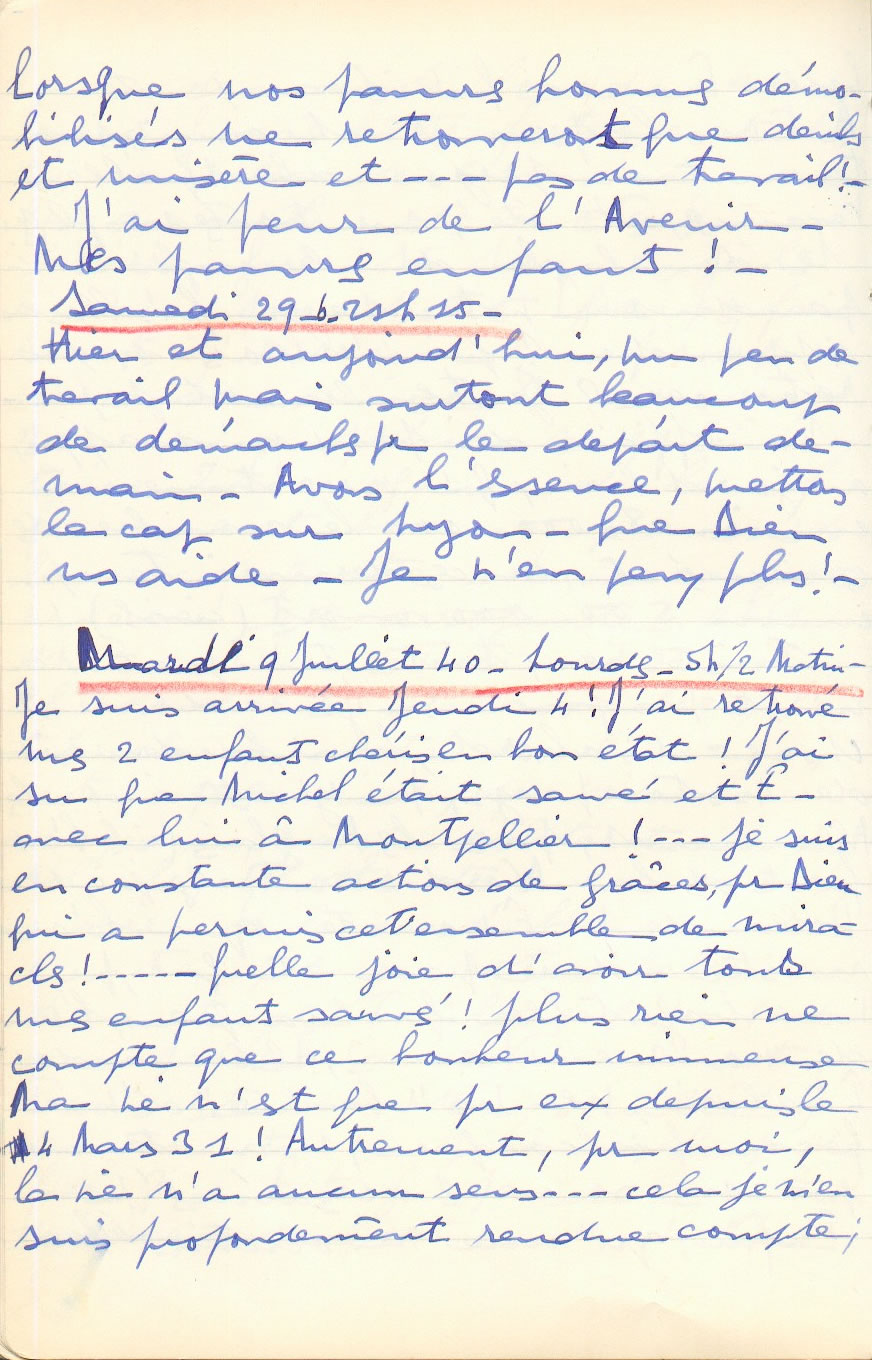 lorsque nos pauvres hommes démo-
bilisés ne retrouveront que deuils
et misère et --- pas de travail ! -
J'ai peur de l'Avenir -
Mes pauvres enfants ! -
Samedi 29_6_21h15 -
Hier et aujourd'hui, un peu de
travail mais surtout beaucoup
de démarches pr le départ de-
main - Avons l'essence, mettons
le cap sur Lyon - Que Dieu
ns aide - Je n'en peux plus ! -
Mardi 9 Juillet 40 - Lourdes - 5h1/2 Matin -
Je suis arrivée Jeudi 4 ! J'ai retrouvé
mes 2 enfants chéris en bon état ! J'ai
su que Michel était sauvé et E -
avec lui à Montpellier ! --- je suis
en constante actions de grâces, pr Dieu
qui a permis cet ensemble de mira-
cles ! ----- quelle joie d'avoir touts
mes enfants sauvés ! plus rien ne
compte que ce bonheur immense
Ma vie n'est que pr eux depuis le
4 Mars 31 ! Autrement, pr moi,
la vie n'a aucun sens --- cela je m'en
suis profondément rendue compte ;